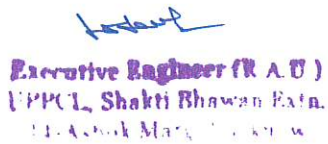 Executive Engineer (R A U)
UPPCL, Shakti Bhawan Extn.
14-Ashok Marg